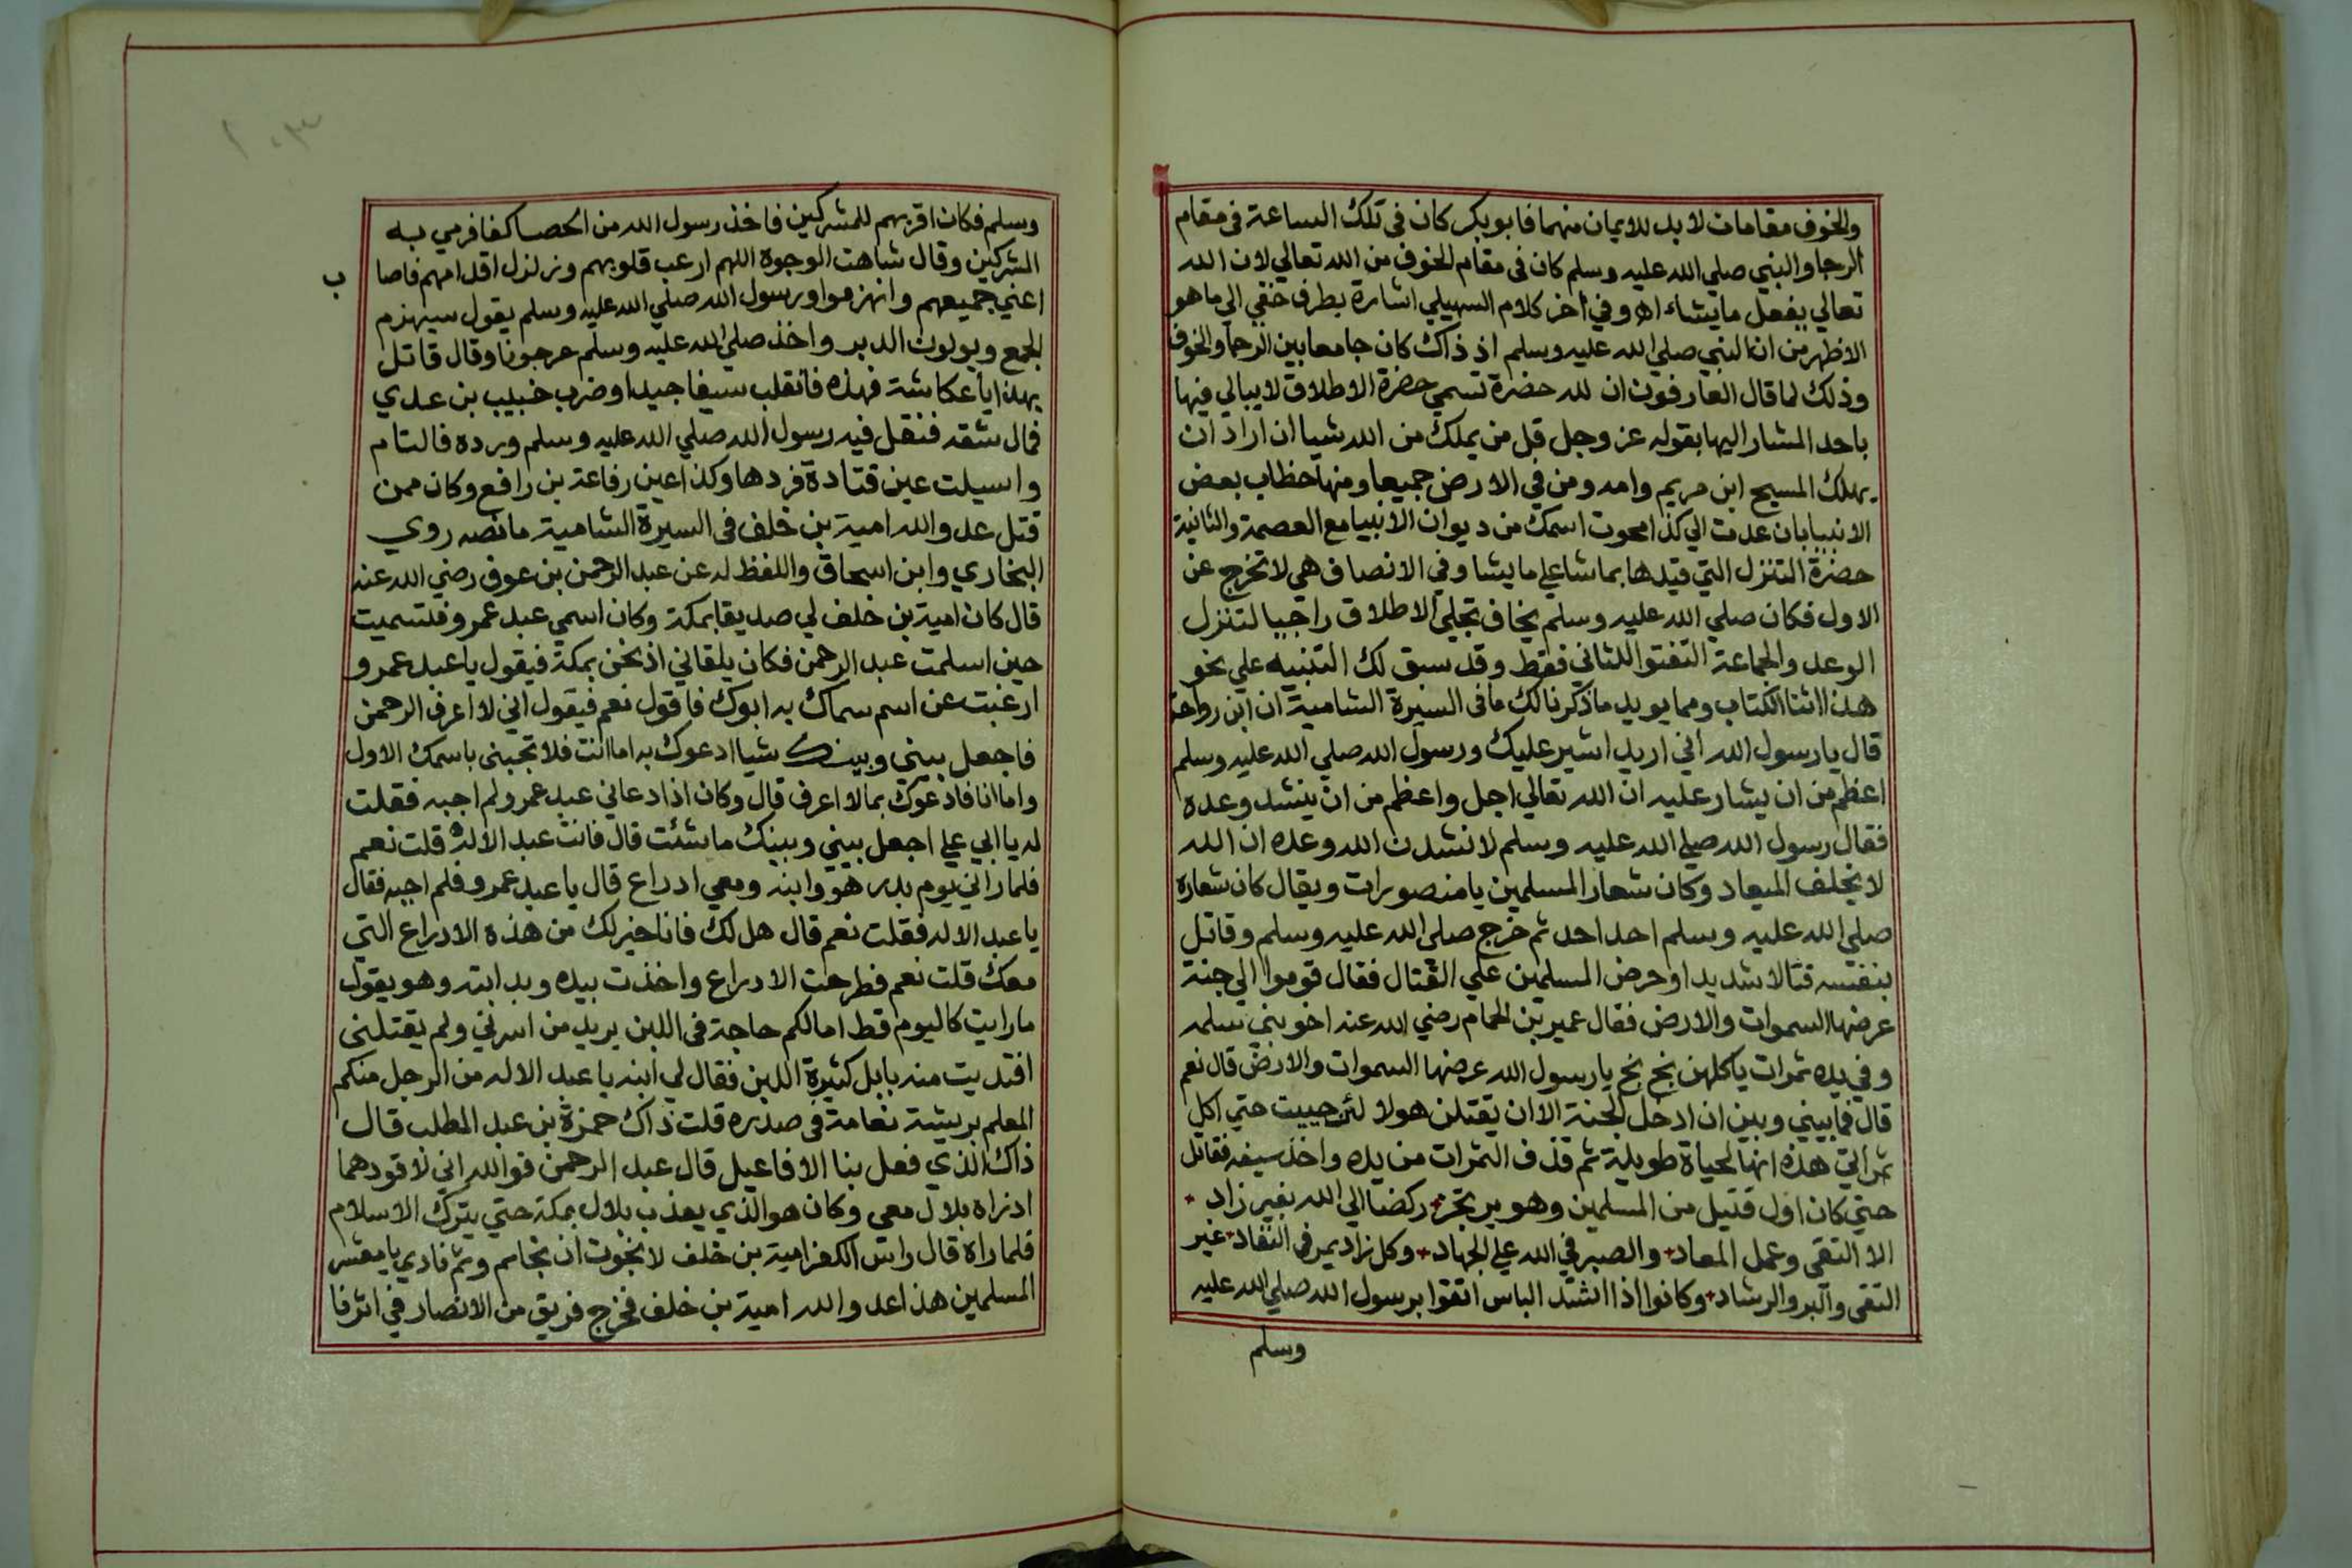 والخوف مقامان لابد للايمان منهما فابوبكر كان في تلك الساعة في مقام
الرجا والنبي صلي الله عليه وسلم كان في مقام الخوف من الله تعالي لان الله
تعالي يفعل مايشاء اه وفي اخر كلام السهيلي اشارة بطرف خفي الي ما هو
الاظهر من ان النبي صلي الله عليه وسلم اذ ذاك كان جامعا بين الرجا والخوف
وذلك لما قال العارفون ان لله حضرة تسمي حضرة الاطلاق لايبالي فيها
باحد المشار اليها بقوله عز وجل قل من يملك من الله شيا ان اراد ان
يهلك المسيح ابن مريم وامه ومن في الارض جميعا ومنها خطاب بعض
الانبيا بان عدت الي كذا محوت اسمك من ديوان الانبيا مع العصمة والثانية
حضرة التنزل التي قيدها بما شا علي ما يشا وفي الانصاف هي لا تخرج عن
الاول فكان صلي الله عليه وسلم يخاف تجلي الاطلاق راجيا لتنزل
الوعد والجماعة التفتوا للثاني فقط وقد سبق لك التنبيه علي نحو
هذا اثنا الكتاب ومما يويد ماذكرنا لك ما في السيرة الشامية ان ابن رواحة
قال يا رسول الله اني اريد اشير عليك ورسول الله صلي الله عليه وسلم
اعظم من ان يشار عليه ان الله تعالي اجل واعظم من ان ينشد وعده
فقال رسول الله صلي الله عليه وسلم لانشدن الله وعده ان الله
لا يخلف الميعاد وكان شعار المسلمين يا منصورات ويقال كان شعاره
صلي الله عليه وسلم احد احد ثم خرج صلي الله عليه وسلم وقاتل
بنفسه قتالا شديدا وحرض المسلمين علي القتال فقال قوموا الي جنة
عرضها السموات والارض فقال عمير بن الحمام رضي الله عنه اخو بني سلمه
وفي يده ثمرات ياكلهن بخ بخ يا رسول الله عرضها السموات والارض قال نعم
قال فما بيني وبين ان ادخل الجنة الا ان يقتلن هولا لئن حييت حتي اكل
ثمراتي هذه انها لحياة طويلة ثم قذف الثمرات من يده واخذ سيفه فقاتل
حتي كان اول قتيل من المسلمين وهو يرتجز ركضا الي الله بغير زاد
الا التقي وعمل المعاد والصبر في الله علي الجهاد وكل زاد يمر في النفاد غير
التقي والبر والرشاد وكانوا اذا اشتد الباس اتقوا برسول الله صلي الله عليه
وسلم
وسلم فكان اقربهم للمشركين فاخذ رسول الله من الحصا كفا فرمي به
المشركين وقال شاهت الوجوة اللهم ارعب قلوبهم وزلزل اقدامهم فاصا
ب
اعني جميعهم وانهزموا ورسول الله صلي الله عليه وسلم يقول سيهزم
الجمع ويولون الدبر واخذ صلي الله عليه وسلم عرجونا وقال قاتل
بهذا يا عكاشة فهزه فانقلب سيفا جيدا وضرب خبيب بن عدي
فمال شقه فتفل فيه رسول الله صلي الله عليه وسلم ورده فالتام
واسيلت عين قتادة فردها وكذا عين رفاعة بن رافع وكان ممن
قتل عدو الله امية بن خلف في السيرة الشامية ما نصه روي
البخاري وابن اسحاق واللفظ له عن عبد الرحمن بن عوف رضي الله عنه
قال كان امية بن خلف لي صديقا بمكة وكان اسمي عبد عمرو فتسميت
حين اسلمت عبد الرحمن فكان يلقاني اذ نحن بمكة فيقول يا عبد عمرو
ارغبت عن اسم سماك به ابوك فاقول نعم فيقول اني لا اعرف الرحمن
فاجعل بيني وبينك شيا ادعوك به اما انت فلا تجبني باسمك الاول
واما انا فادعوك بما لا اعرف قال وكان اذا دعاني عبد عمرو لم اجبه فقلت
له يا ابي علي اجعل بيني وبينك ما شئت قال فانت عبد الاله قلت نعم
فلما راني يوم بدر هو وابنه ومعي ادراع قال يا عبد عمرو فلم اجبه فقال
يا عبد الاله فقلت نعم قال هل لك فانا خير لك من هذه الادراع التي
معك قلت نعم فطرحت الادراع واخذت بيده ويد ابنه وهو يقول
مارايت كاليوم قط امالكم حاجة في اللبن يريد من اسرني ولم يقتلني
افتديت منه بابل كثيرة اللبن فقال لي ابنه يا عبد الاله من الرجل منكم
المعلم بريشة نعامة في صدره قلت ذاك حمزة بن عبد المطلب قال
ذاك الذي فعل بنا الافاعيل قال عبد الرحمن فوالله اني لاقودهما
اذ راه بلال معي وكان هو الذي يعذب بلال بمكة حتي يترك الاسلام
فلما راه قال راس الكفر امية بن خلف لا نجوت ان نجا ثم نادي يا معشر
المسلمين هذا عدو الله امية بن خلف فخرج فريق من الانصار في اثرنا